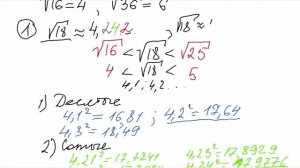 √16 = 4 , √36 = 6
① √18 ≈ 4,242... , √18 ≈
√16 < √18 < √25
4 < √18 < 5
4,1; 4,2 ...
1) Десятые
4,1² = 16,81 ; 4,2² = 17,64
4,3² = 18,49
2) Сотые
4,21² = 17,7241 4,25² = 17,8929